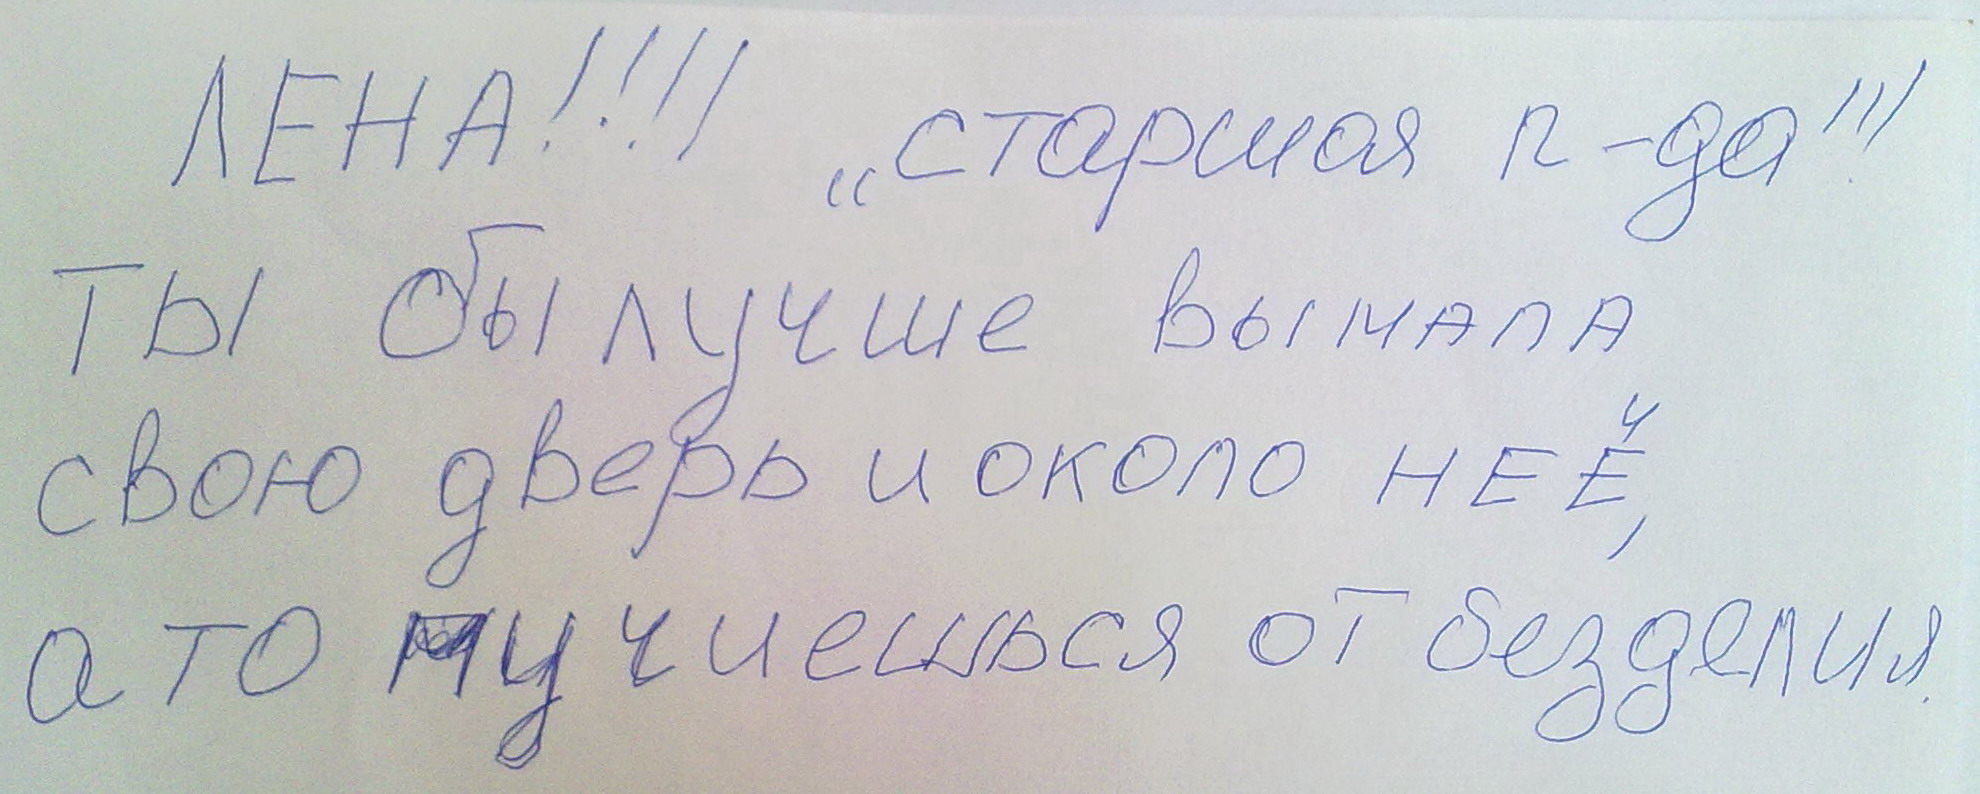 ЛЕНА!!!! „старшая п-да"!
ты бы лучше вымапа
свою дверь и около неё,
а то мучиешься от безделия.